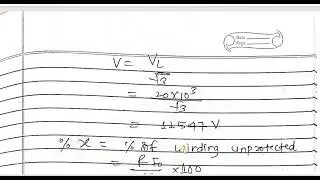 Date
Page
V = VL / √3
= 20×10³ / √3
= 11547 V
% x = % of winding unprotected
= R I₀ / ×100